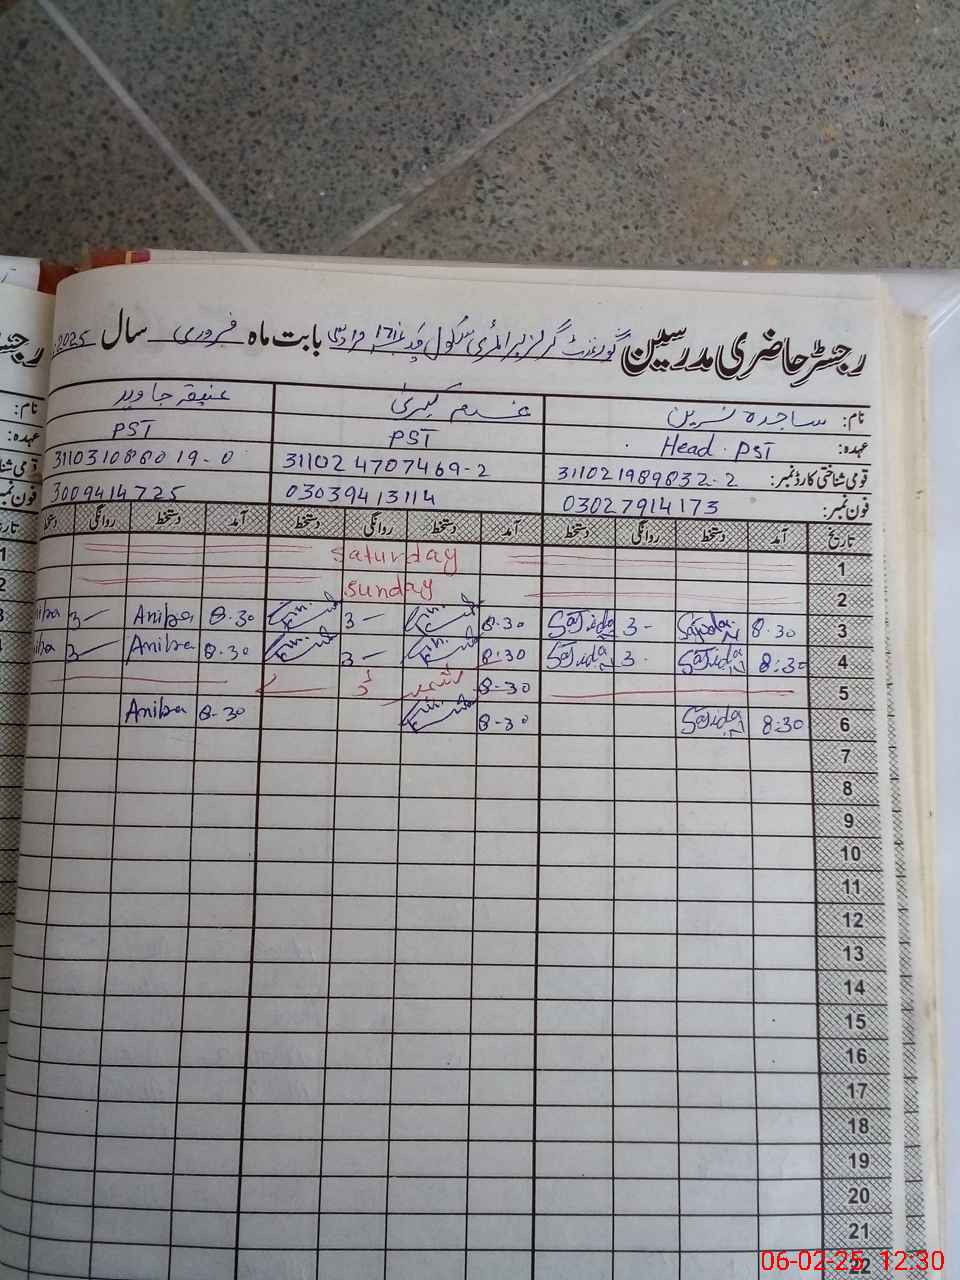 رجسٹر حاضری مدرسین گورنمنٹ گرلز پرائمری سکول بابت ماہ فروری سال 2025
نام: ساجدہ نسرین کبریٰ جاوید
عہدہ: Head PST PST PST
قومی شناختی کارڈ نمبر: 311021989832-2 311024707469-2 311031088019-0
فون نمبر: 03027914173 03039413114 3009414725
تاریخ آمد دستخط روانگی دستخط آمد دستخط روانگی دستخط آمد دستخط روانگی دستخط
1 Saturday
2 Sunday
3 8.30 Sajida.N 3- Sajida 8-30 3- 8.30 Aniba 3- iba
4 8:30 Sajida.N 3- Sajida 8:30 3- 8.30 Aniba 3- iba
5 8-30 کشمیر ڈے
6 8:30 Sajida.N 8-30 8.30 Aniba
7
8
9
10
11
12
13
14
15
16
17
18
19
20
21
22
06-02-25 12:30